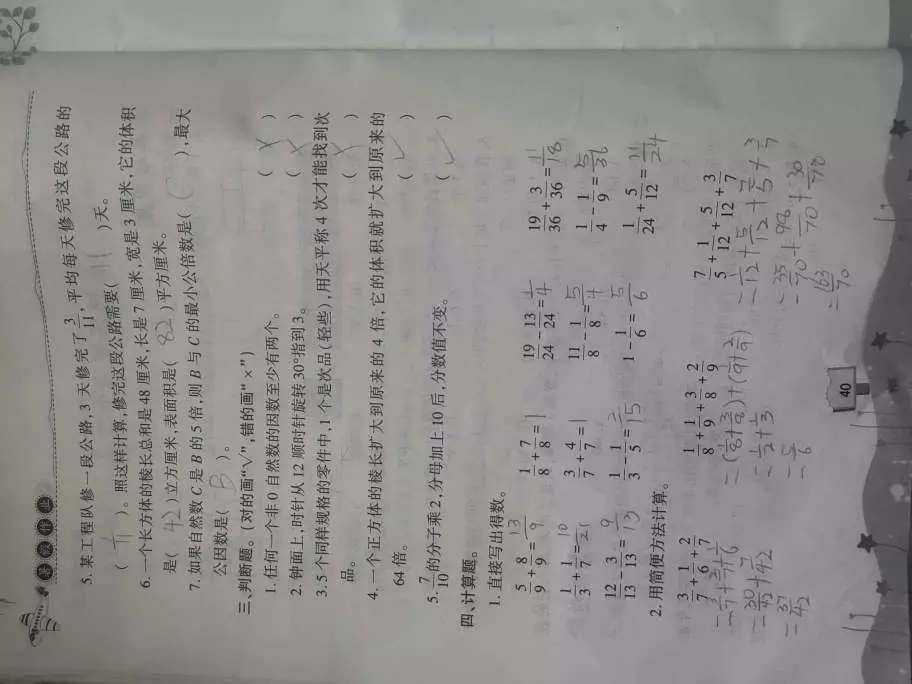 5. 某工程队修一段公路,3 天修完了3/11,平均每天修完这段公路的
( 1/11 )。照这样计算,修完这段公路需要( 11 )天。
6. 一个长方体的棱长总和是 48 厘米,长是 7 厘米,宽是 3 厘米,它的体积
是( 42 )立方厘米,表面积是( 82 )平方厘米。
7. 如果自然数 C 是 B 的 5 倍,则 B 与 C 的最小公倍数是( C ),最大
公因数是( B )。
三、判断题。(对的画“√”,错的画“×”)
1. 任何一个非 0 自然数的因数至少有两个。 ( × )
2. 钟面上,时针从 12 顺时针旋转 30°指到 3。 ( × )
3. 5 个同样规格的零件中,1 个是次品(轻些),用天平称 4 次才能找到次
品。 ( × )
4. 一个正方体的棱长扩大到原来的 4 倍,它的体积就扩大到原来的
64 倍。 ( √ )
5. 7/10的分子乘 2,分母加上 10 后,分数值不变。 ( √ )
四、计算题。
1. 直接写出得数。
5/9+8/9=13/9 1/8+7/8=1 19/24-13/24=1/4 19/36+3/36=11/18
1/3+1/7=10/21 3/7+4/7=1 11/8-1/8=5/4 1/4-1/9=5/36
12/13-3/13=9/13 1/3-1/5=2/15 1-1/6=5/6 1/24+5/12=11/24
2. 用简便方法计算。
3/7+1/6+2/7 1/8+1/9+3/8+2/9 7/5+1/12+5/12+3/7
=(1/8+3/8)+(1/9+2/9) =1/12+5/12+7/5+3/7
=30/42+7/42 =1/2+1/3 =35/70+98/70+30/70
=37/42 =5/6 =163/70
40